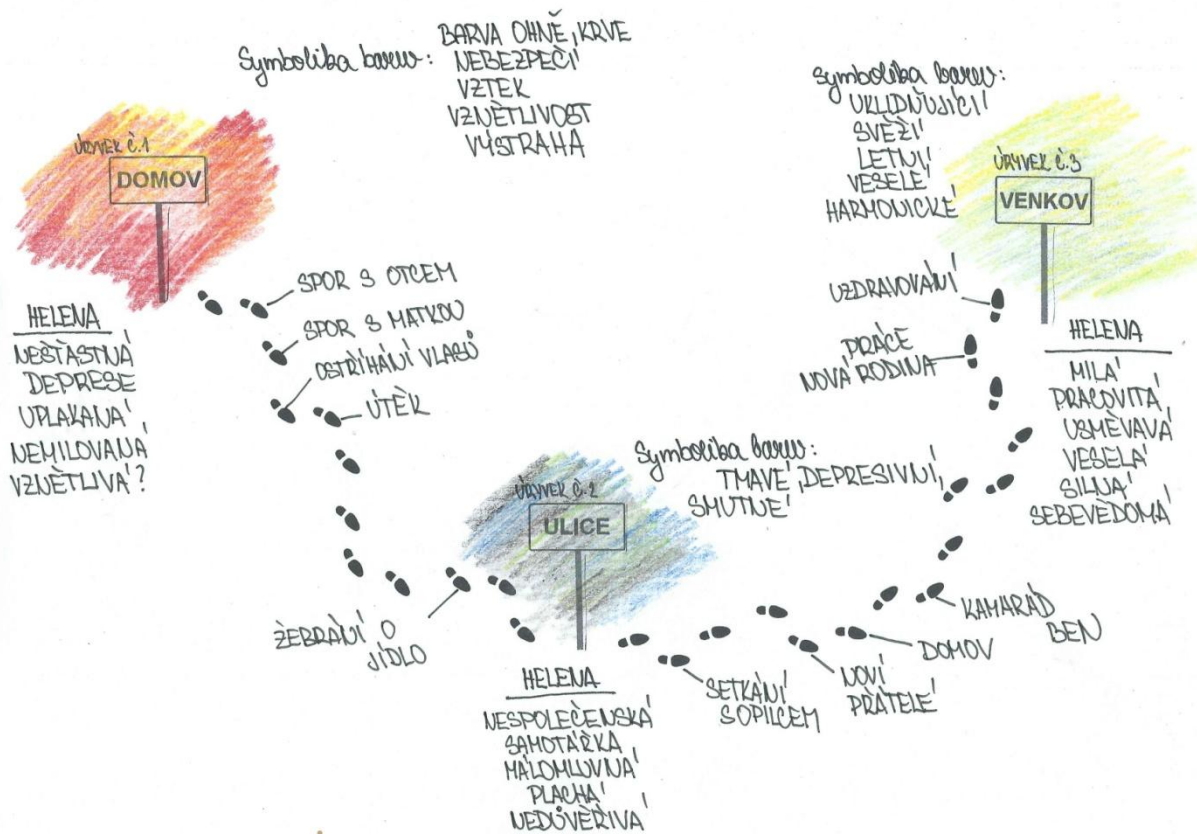 Symbolika barev:
BARVA OHNĚ, KRVE
NEBEZPEČÍ
VZTEK
VZNĚTLIVOST
VÝSTRAHA
ÚRYVEK č.1
DOMOV
HELENA
NEŠŤASTNÁ
DEPRESE
UPLAKANÁ
NEMILOVANÁ
VZNĚTLIVÁ?
SPOR S OTCEM
SPOR S MATKOU
OSTŘÍHÁNÍ VLASŮ
ÚTĚK
ŽEBRÁNÍ O
JÍDLO
Symbolika barev:
TMAVÉ, DEPRESIVNÍ,
SMUTNÉ
ÚRYVEK č.2
ULICE
HELENA
NESPOLEČENSKÁ
SAMOTÁŘKA
MÁLOMLUVNÁ
PLACHÁ
NEDŮVĚŘIVÁ
SETKÁNÍ
S OPILCEM
NOVÍ
PŘÁTELÉ
DOMOV
KAMARÁD
BEN
PRÁCE
NOVÁ RODINA
UZDRAVOVÁNÍ
Symbolika barev:
UKLIDŇUJÍCÍ
SVĚŽÍ
LETNÍ
VESELÉ
HARMONICKÉ
ÚRYVEK č.3
VENKOV
HELENA
MILÁ
PRACOVITÁ
USMĚVAVÁ
VESELÁ
SILNÁ
SEBEVĚDOMÁ